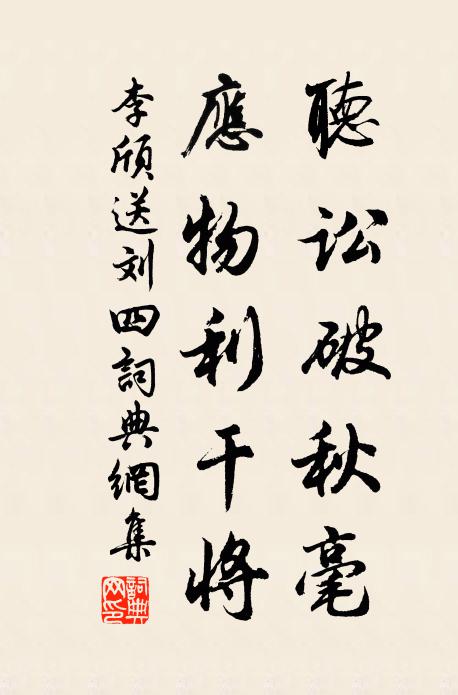 聽訟破秋毫
應物利干將
李頎送刘四詞典網集
詞典
网印